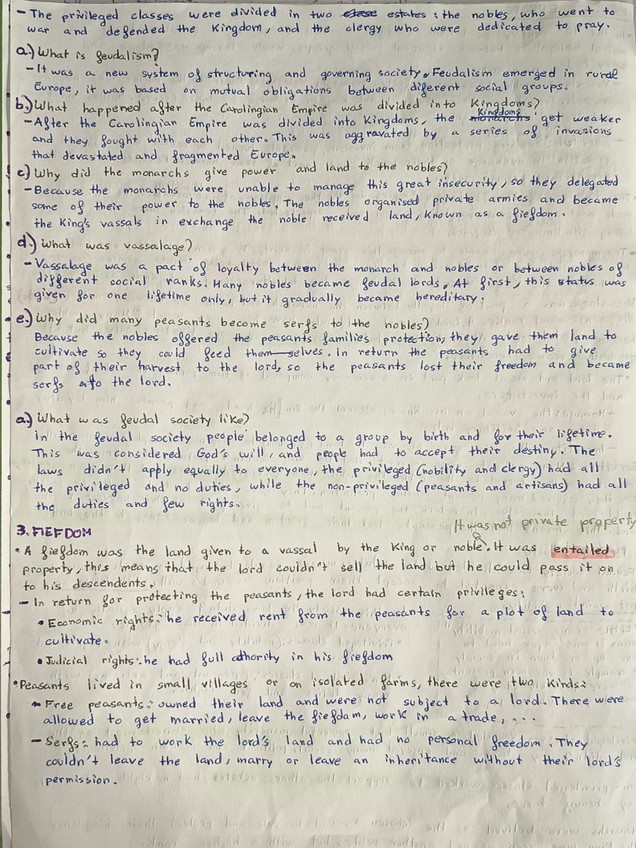 - The privileged classes were divided in two estates: the nobles, who went to
war and defended the Kingdom, and the clergy who were dedicated to pray.
a.) What is feudalism?
- It was a new system of structuring and governing society. Feudalism emerged in rural
Europe, it was based on mutual obligations between different social groups.
b.) What happened after the Carolingian Empire was divided into Kingdoms?
- After the Carolingian Empire was divided into Kingdoms, the kingdoms get weaker
and they fought with each other. This was aggravated by a series of invasions
that devastated and fragmented Europe.
c.) Why did the monarchs give power and land to the nobles?
- Because the monarchs were unable to manage this great insecurity, so they delegated
some of their power to the nobles. The nobles organised private armies and became
the King's vassals in exchange the noble received land, known as a fiefdom.
d.) What was vassalage?
- Vassalage was a pact of loyalty between the monarch and nobles or between nobles of
different social ranks. Many nobles became feudal lords. At first, this status was
given for one lifetime only, but it gradually became hereditary.
e.) Why did many peasants become serfs to the nobles?
Because the nobles offered the peasants families protection, they gave them land to
cultivate so they could feed themselves. In return the peasants had to give
part of their harvest to the lord, so the peasants lost their freedom and became
serfs to the lord.
a.) What was feudal society like?
In the feudal society people belonged to a group by birth and for their lifetime.
This was considered God's will, and people had to accept their destiny. The
laws didn't apply equally to everyone, the privileged (nobility and clergy) had all
the privileged and no duties, while the non-privileged (peasants and artisans) had all
the duties and few rights.
3. FIEFDOM
It was not private property
• A fiefdom was the land given to a vassal by the King or noble. It was entailed
property, this means that the lord couldn't sell the land but he could pass it on
to his descendents.
- In return for protecting the peasants, the lord had certain privileges:
• Economic rights: he received rent from the peasants for a plot of land to
cultivate.
• Judicial rights: he had full athority in his fiefdom
• Peasants lived in small villages or on isolated farms, there were two kinds:
- Free peasants: owned their land and were not subject to a lord. There were
allowed to get married, leave the fiefdam, work in a trade, ...
- Serfs: had to work the lord's land and had no personal freedom. They
couldn't leave the land, marry or leave an inheritance without their lord's
permission.